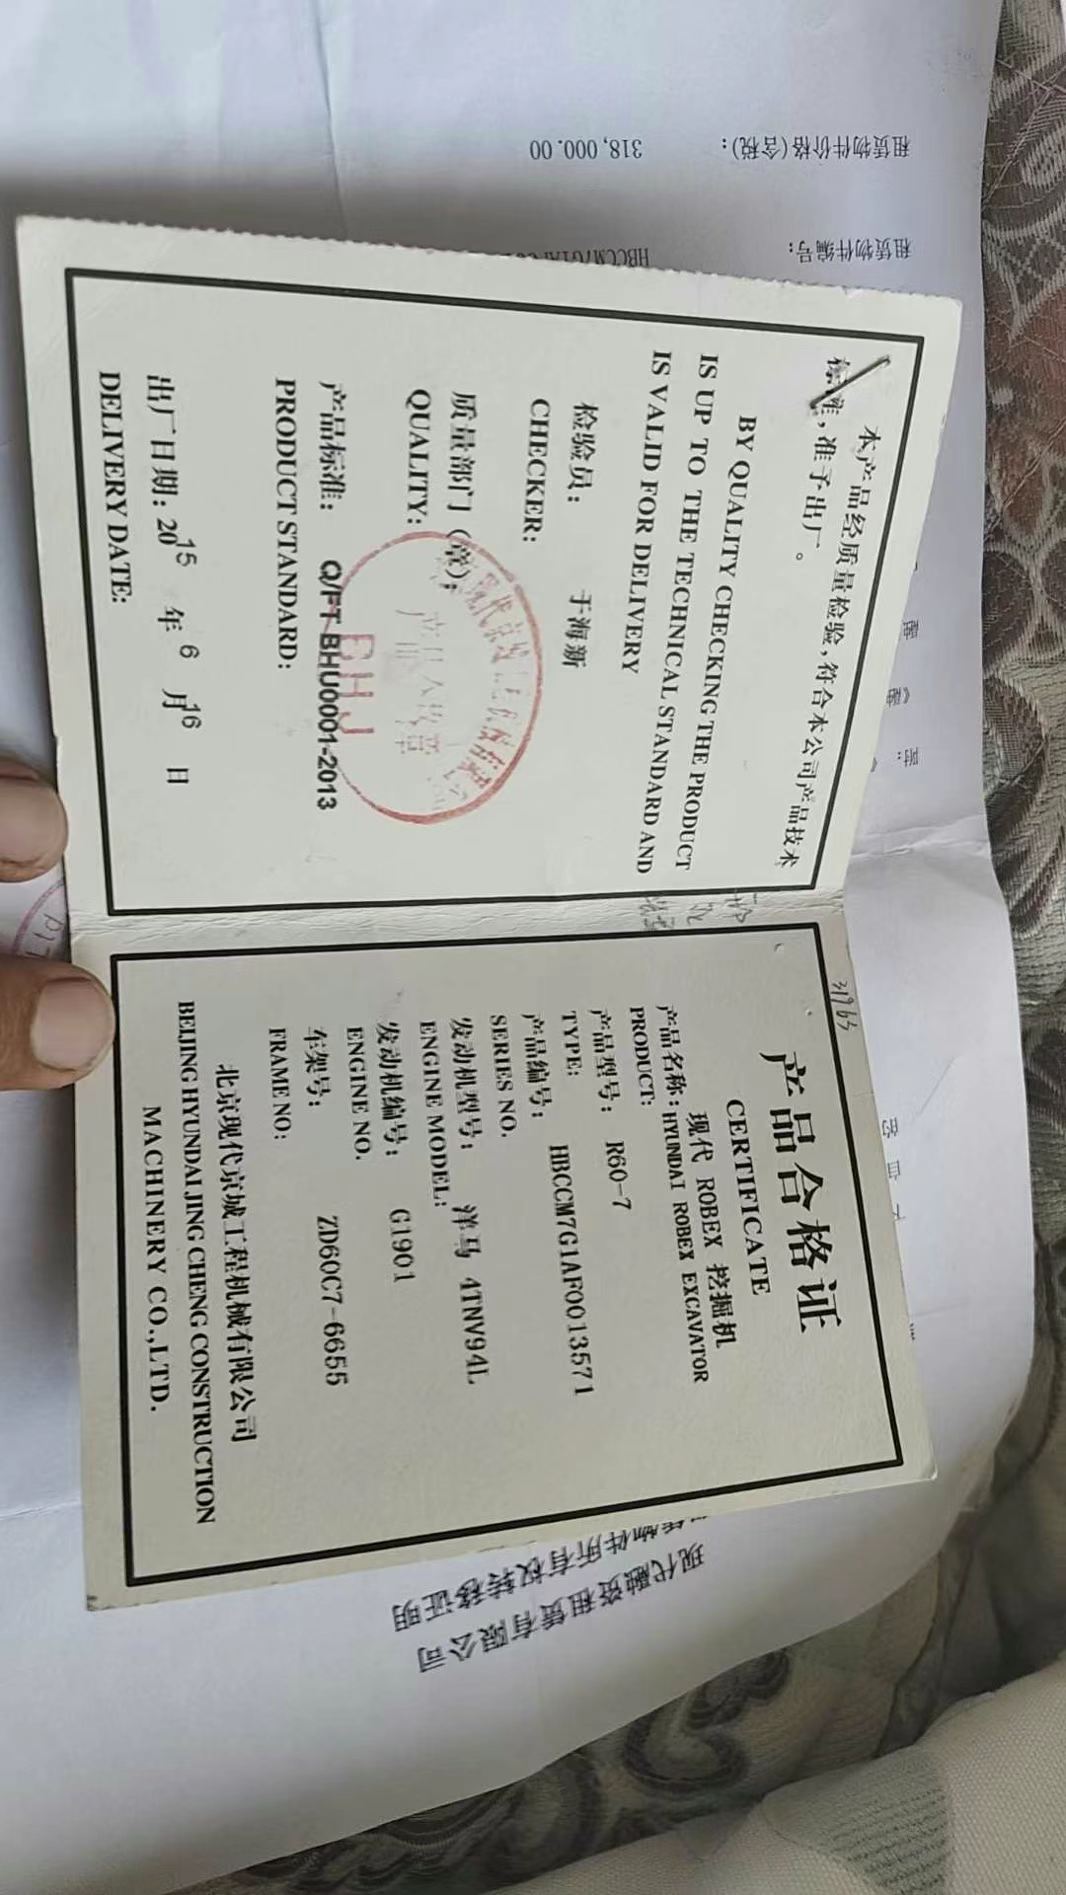 产品合格证
CERTIFICATE
产品名称: 现代 ROBEX 挖掘机
PRODUCT: HYUNDAI ROBEX EXCAVATOR
产品型号: R60-7
TYPE:
产品编号: HBCCM7G1AF0013571
SERIES NO.
发动机型号: 洋马 4TNV94L
ENGINE MODEL:
发动机编号: G1901
ENGINE NO.
车架号: ZD60C7-6655
FRAME NO:
北京现代京城工程机械有限公司
BEIJING HYUNDAI JING CHENG CONSTRUCTION
MACHINERY CO.,LTD.
本产品经质量检验,符合本公司产品技术
标准,准予出厂。
BY QUALITY CHECKING THE PRODUCT
IS UP TO THE TECHNICAL STANDARD AND
IS VALID FOR DELIVERY
检验员: 于海新
CHECKER:
质量部门(章):
QUALITY:
BHJ
产品标准: Q/FT BHU0001-2013
PRODUCT STANDARD:
出厂日期: 2015 年 6 月 16 日
DELIVERY DATE:
现代融资租赁有限公司
物件所有权转移证明
租赁物件编号:
租赁物件价格(含税): 318,000.00